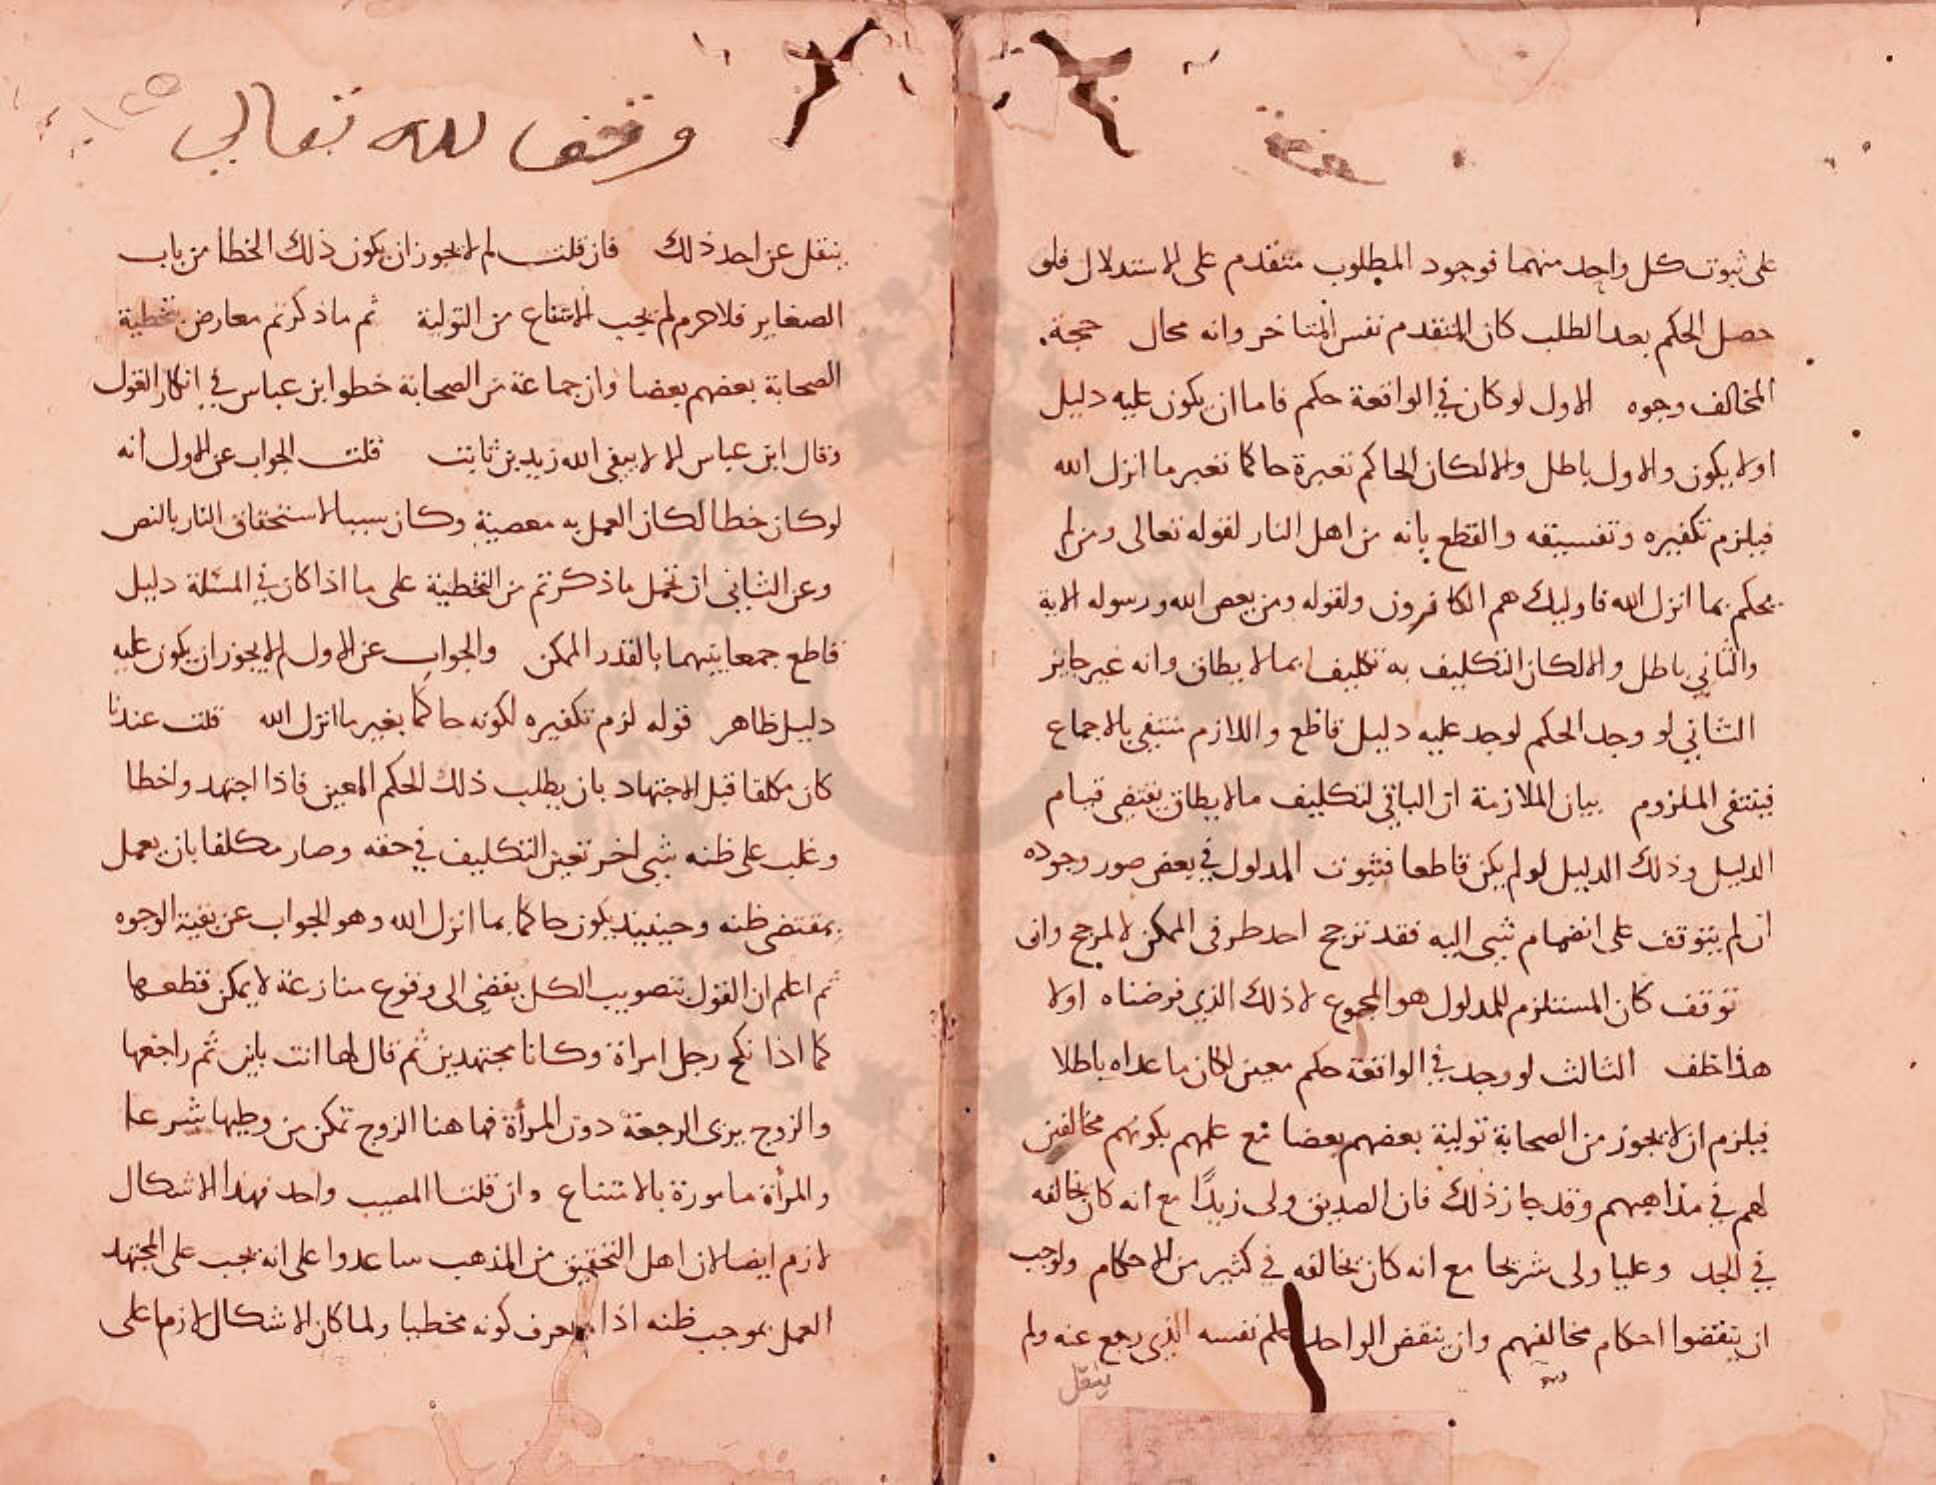 على ثبوت كل واحد منهما فوجود المطلوب متقدم على الاستدلال فلو
حصل الحكم بعد الطلب كان المتقدم نفس المتاخر وانه محال حجة
المخالف وجوه الاول لو كان في الواقعة حكم فاما ان يكون عليه دليل
اولا يكون والاول باطل والا لكان الحاكم بغيره حاكما بغير ما انزل الله
فيلزم تكفيره وتفسيقه والقطع بانه من اهل النار لقوله تعالى ومن لم
يحكم بما انزل الله فاوليك هم الكافرون ولقوله ومن يعص الله ورسوله الاية
والثاني باطل والا لكان التكليف به تكليفا بما لا يطاق وانه غير جايز
الثاني لو وجد الحكم لوجد عليه دليل قاطع واللازم منتفي بالاجماع
فينتفى الملزوم بيان الملازمة ان الباقي لتكليف مالا يطاق يقتضى قيام
الدليل وذلك الدليل لو لم يكن قاطعا فثبوت المدلول في بعض صور وجوده
ان لم يتوقف على انضمام شي اليه فقد ترجح احد طرفى الممكن لا لمرجح وان
توقف كان المستلزم للمدلول هو المجموع لا ذلك الذي فرضناه اولا
هذا خلف الثالث لو وجد في الواقعة حكم معين لكان ما عداه باطلا
فيلزم ان لا يجوز من الصحابة تولية بعضهم بعضا مع علمهم بكونهم مخالفين
لهم في مذاهبهم وقد جاز ذلك فان الصديق ولى زيدًا مع انه كان يخالفه
في الجد وعليا ولى شريحا مع انه كان يخالفه في كثير من الاحكام ولوجب
ان ينقضوا احكام مخالفيهم وان ينقض الواحد حكم نفسه الذي رجع عنه ولم
ينقل
وقف لله تعالى
ينقل عن احد ذلك فان قلت لم لا يجوز ان يكون ذلك الخطا من باب
الصغاير فلا جرم لم يجب الامتناع من التولية ثم ما ذكرتم معارض بتخطية
الصحابة بعضهم بعضا وان جماعة من الصحابة خطوا ابن عباس في انكار القول
وقال ابن عباس الا لا يتقى الله زيد بن ثابت قلت الجواب عن الاول انه
لو كان خطا لكان العمل به معصية وكان سببا لاستحقاق النار بالنص
وعن الثاني ان نحمل ما ذكرتم من التخطية على ما اذا كان في المسئلة دليل
قاطع جمعا بينهما بالقدر الممكن والجواب عن الاول لم لا يجوز ان يكون عليه
دليل ظاهر قوله لزم تكفيره لكونه حاكما بغير ما انزل الله قلت عندنا
كان مكلفا قبل الاجتهاد بان يطلب ذلك الحكم المعين فاذا اجتهد واخطا
وغلب على ظنه شي اخر تعين التكليف في حقه وصار مكلفا بان يعمل
بمقتضى ظنه وحينيذ يكون حاكما بما انزل الله وهو الجواب عن بقية الوجوه
ثم اعلم ان القول بتصويب الكل يفضى الى وقوع منازعة لا يمكن قطعها
كما اذا نكح رجل امراة وكانا مجتهدين ثم قال لها انت باين ثم راجعها
والزوج يرى الرجعة دون المرأة فها هنا الزوج تمكن من وطيها شرعا
والمرأة مامورة بالامتناع وان قلنا المصيب واحد فهذا الاشكال
لازم ايضا لان اهل التحقيق من المذهب ساعدوا على انه يجب على المجتهد
العمل بموجب ظنه اذا يعرف كونه مخطيا ولما كان الاشكال لازما على